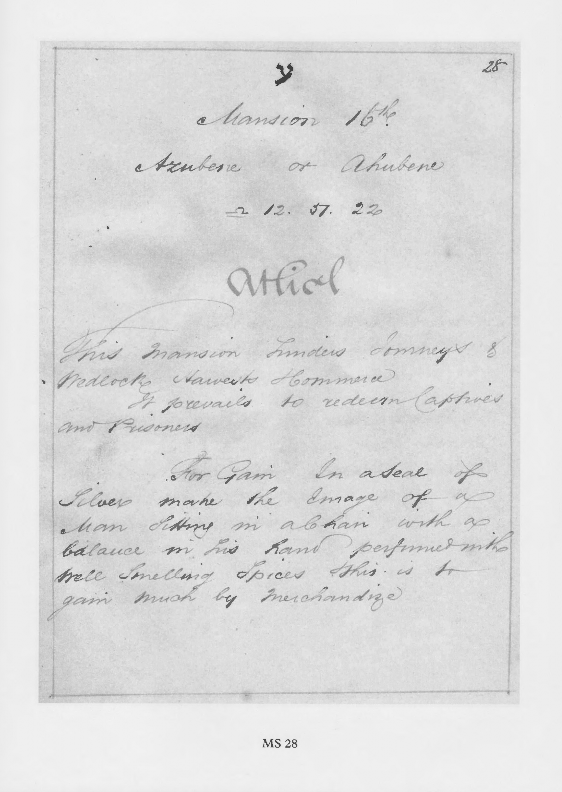 ע 28
Mansion 16th
Azubene or Ahubene
♎ 12. 51. 22
Athiel
This Mansion hinders Journeys &
Wedlock Harvests Commerce
It prevails to redeem Captives
and Prisoners
For Gain In a Seal of
Silver make the Image of a
Man Sitting in a Chair with a
balance in his hand perfumed with
well Smelling Spices this is to
gain much by Merchandize
MS 28